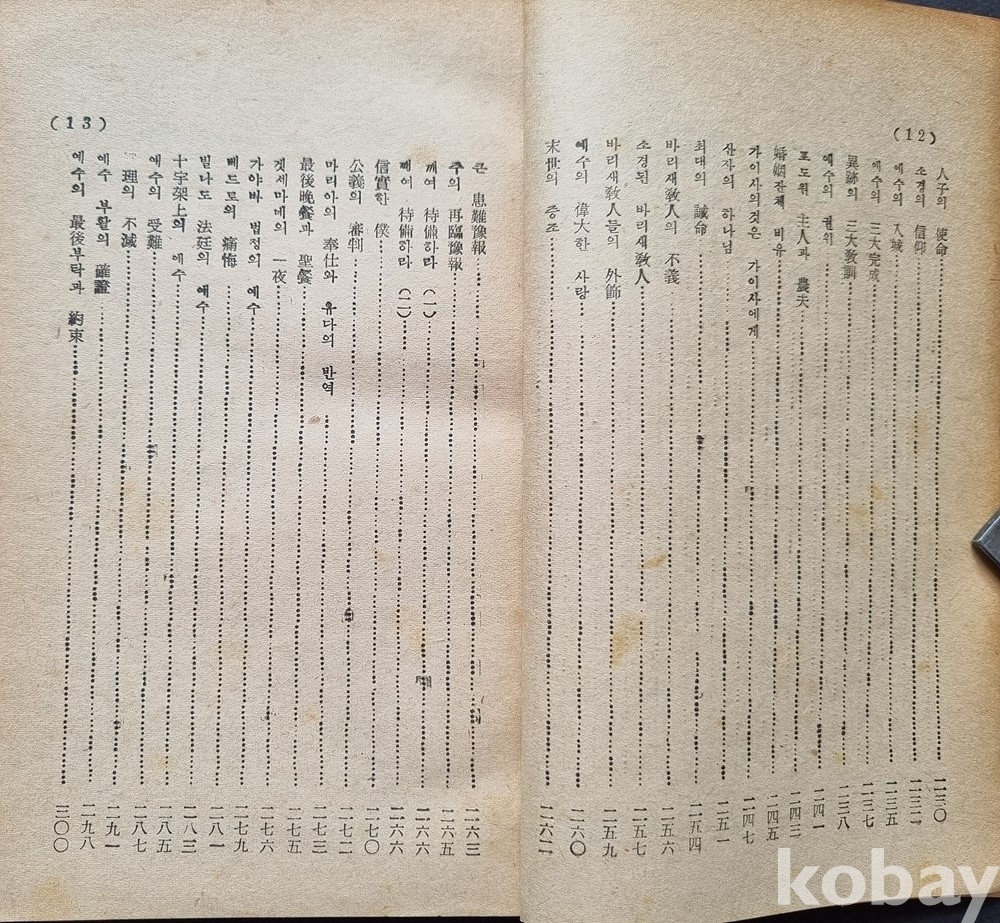 (12)
人子의 使命 二三〇
소경의 信仰 二三二
예수의 入城 二三五
예수의 三大完成 二三七
異跡의 三大敎訓 二三八
예수의 권위 二四一
포도원 主人과 農夫 二四三
婚姻잔체 비유 二四五
가이사의것은 가이사에게 二四七
산자의 하나님 二五一
최대의 誡命 二五四
바리새敎人의 不義 二五六
소경된 바리새敎人 二五七
바리새敎人들의 外飾 二五九
예수의 偉大한 사랑 二六〇
末世의 증조 二六二
(13)
큰 患難豫報 二六三
주의 再臨豫報 二六五
깨여 待備하라 (一) 二六六
깨여 待備하라 (二) 二六六
信實한 僕 二七〇
公義의 審判 二七二
마리아의 奉仕와 유다의 반역 二七三
最後晩餐과 聖餐 二七五
겟세마네의 一夜 二七六
가야바 법정의 예수 二七九
베드로의 痛悔 二八一
빌나도 法廷의 예수 二八三
十字架上의 예수 二八五
예수의 受難 二八七
理의 不滅 二九一
예수 부활의 確證 二九八
예수의 最後부탁과 約束 三〇〇
kobay